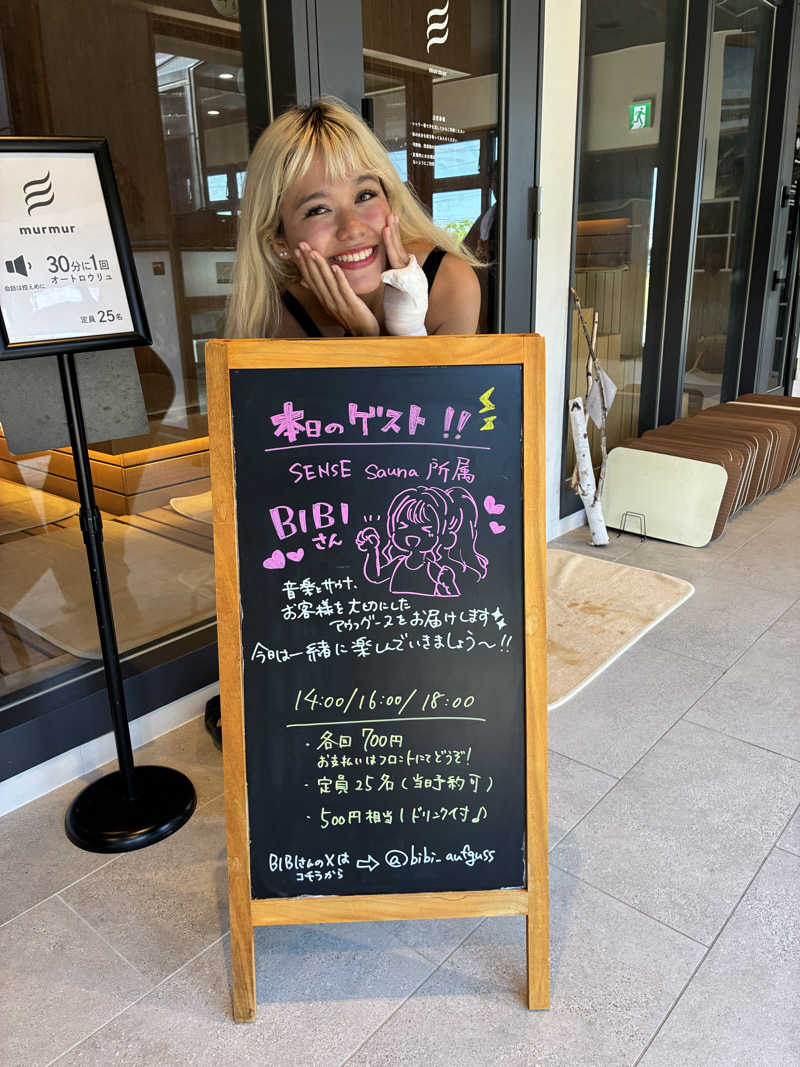 murmur
30分に1回
オートロウリュ
会話は控えめに
定員 25名
murmur
本日のゲスト!!
SENSE Sauna 所属
BIBI
さん
音楽とサウナ、
お客様を大切にした
アウフグースをお届けします
今日は一緒に楽しんでいきましょう〜!!
14:00/16:00/18:00
・各回 700円
お支払いはフロントにてどうぞ!
・定員25名(当日予約可)
・500円相当1ドリンク付♪
BIBIさんのXは
コチラから
⇨ @bibi_aufguss